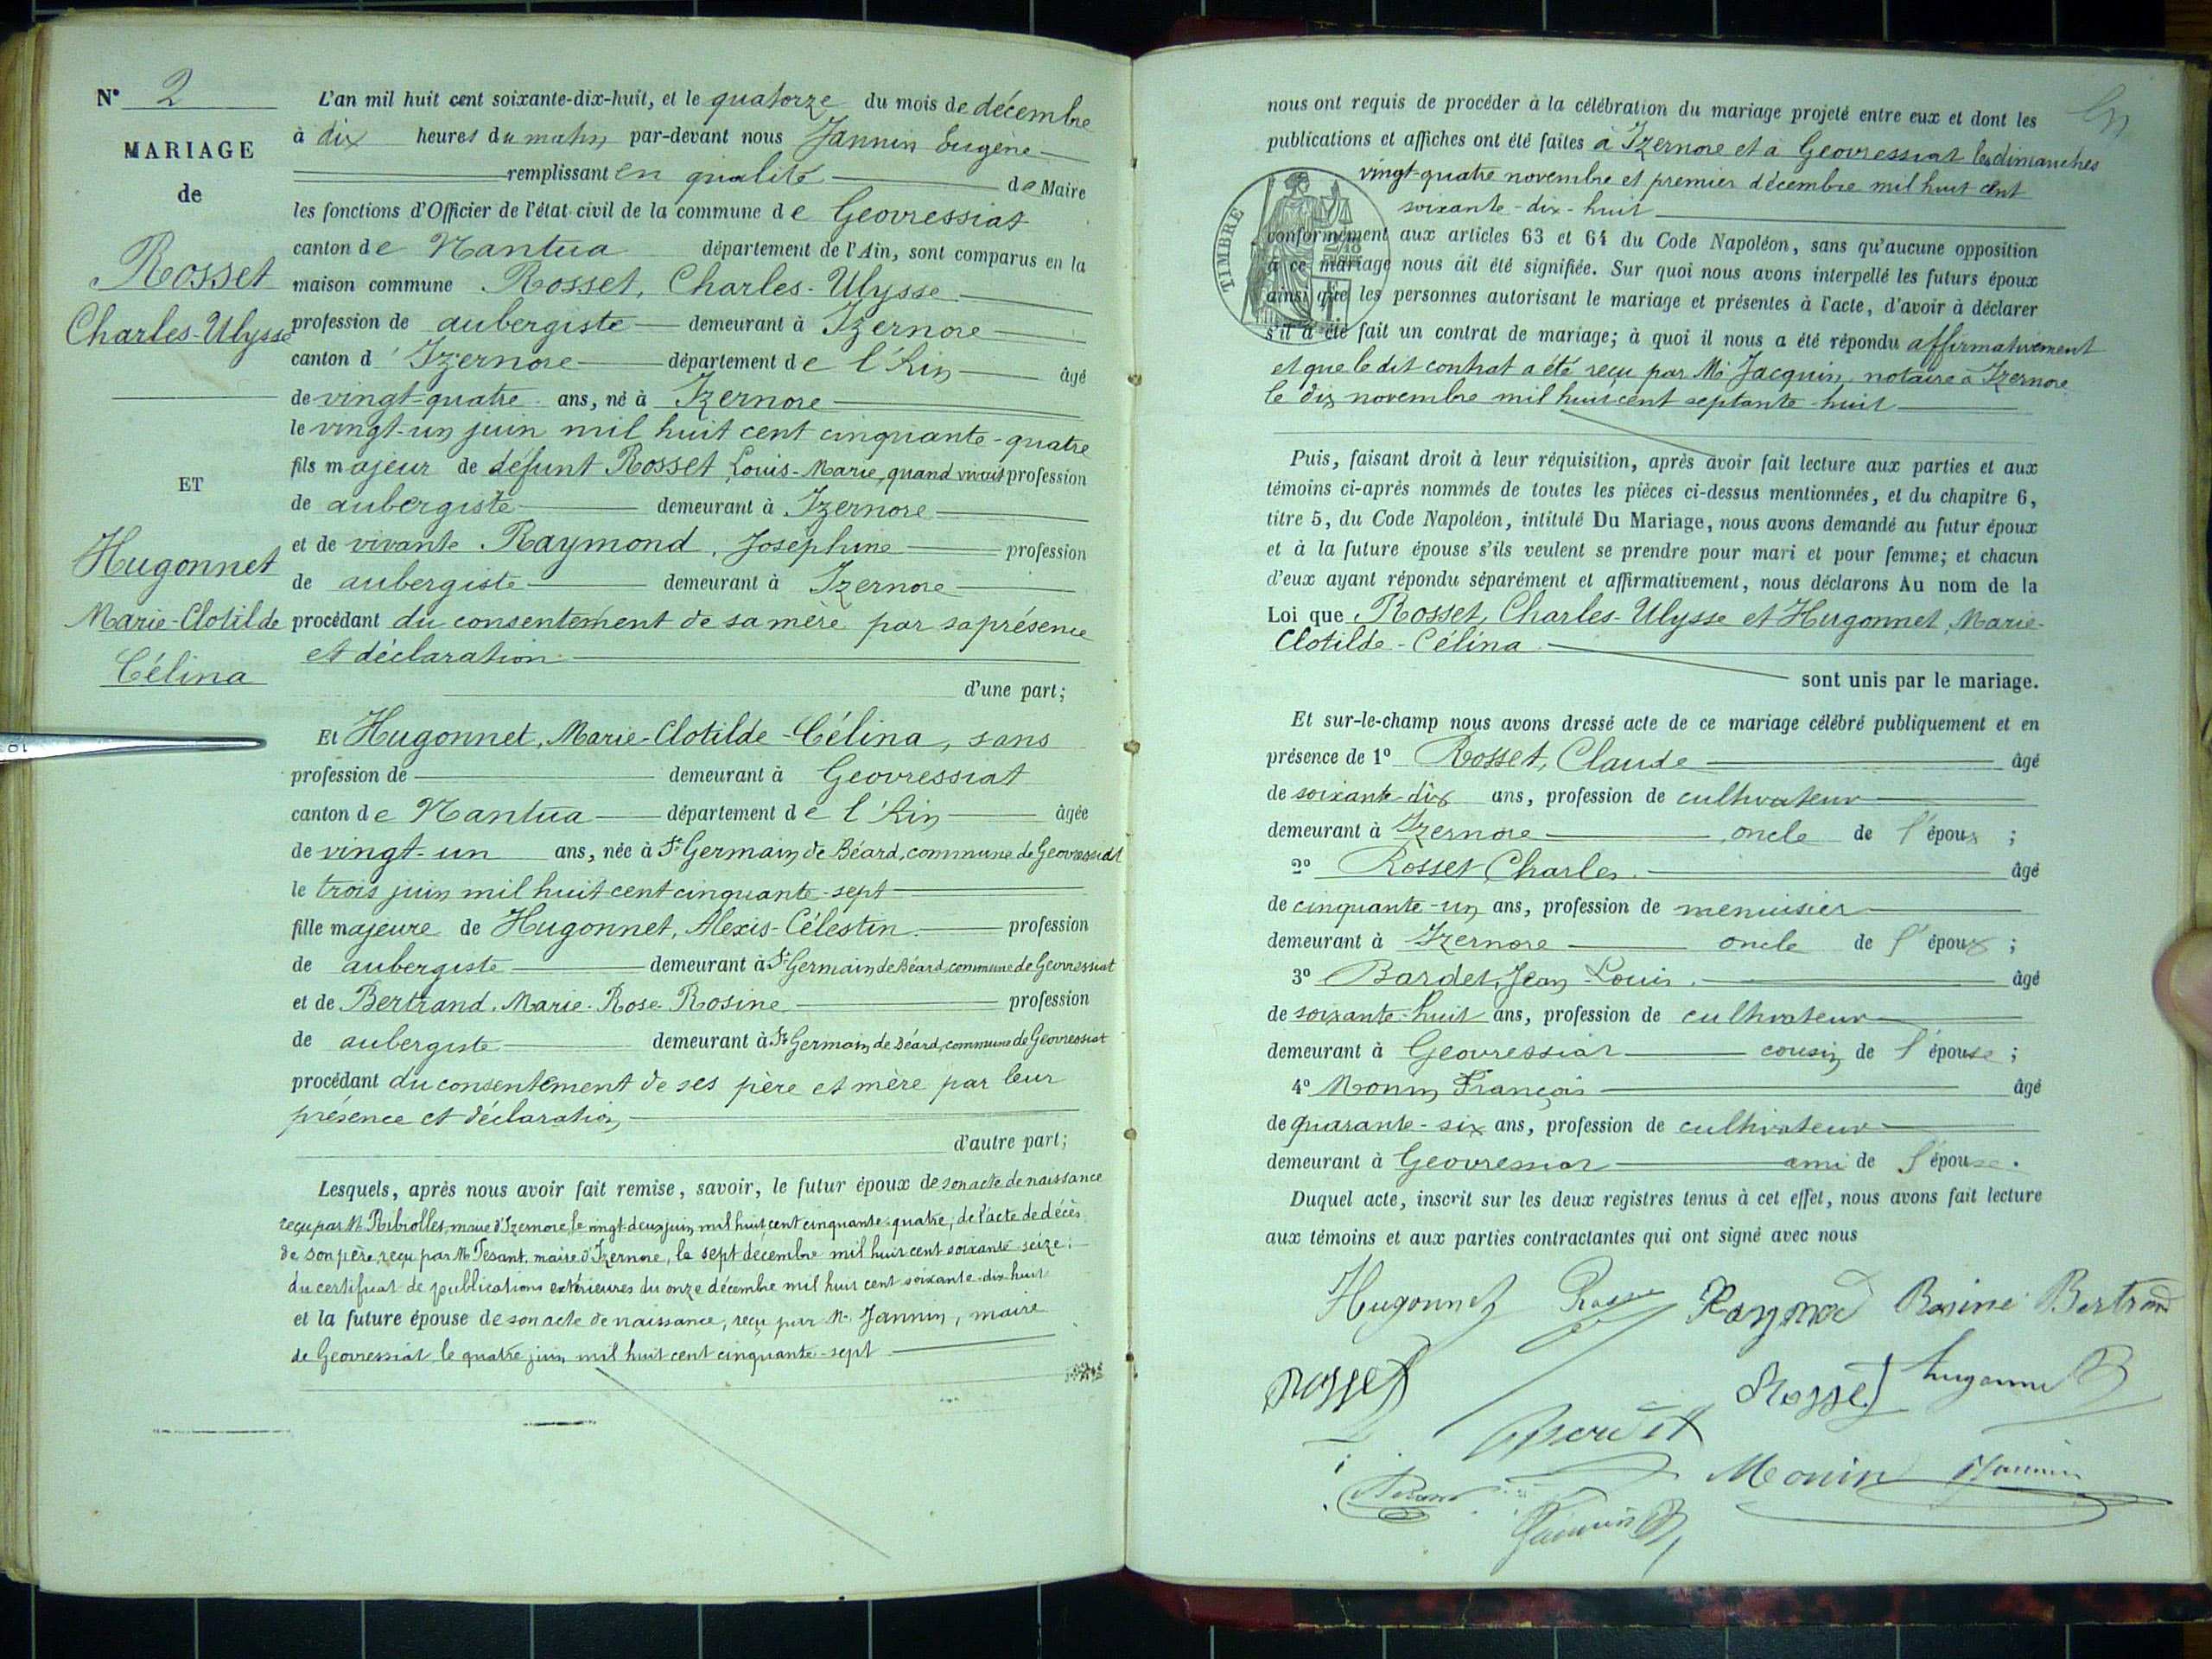 N° 2
MARIAGE
de
Rosset
Charles-Ulysse
ET
Hugonnet
Marie-Clotilde
Célina
L'an mil huit cent soixante-dix-huit, et le quatorze du mois de décembre
à dix heures du matin par-devant nous Jannin Eugène
remplissant en qualité de Maire
les fonctions d'Officier de l'état civil de la commune de Geovressiat
canton de Nantua département de l'Ain, sont comparus en la
maison commune Rosset, Charles-Ulysse
profession de aubergiste demeurant à Izernore
canton d'Izernore département de l'Ain âgé
de vingt-quatre ans, né à Izernore
le vingt-un juin mil huit cent cinquante-quatre
fils majeur de défunt Rosset, Louis-Marie, quand vivait profession
de aubergiste demeurant à Izernore
et de vivante Raymond, Josephine profession
de aubergiste demeurant à Izernore
procédant du consentement de sa mère par sa présence
et déclaration
d'une part;
Et Hugonnet, Marie-Clotilde-Célina, sans
profession de demeurant à Geovressiat
canton de Nantua département de l'Ain âgée
de vingt-un ans, née à St Germain de Béard, commune de Geovressiat
le trois juin mil huit cent cinquante-sept
fille majeure de Hugonnet, Alexis-Célestin profession
de aubergiste demeurant à St Germain de Béard, commune de Geovressiat
et de Bertrand, Marie-Rose-Rosine profession
de aubergiste demeurant à St Germain de Béard, commune de Geovressiat
procédant du consentement de ses père et mère par leur
présence et déclaration
d'autre part;
Lesquels, après nous avoir fait remise, savoir, le futur époux de son acte de naissance
reçu par M. Ribrolles, maire d'Izernore le vingt-deux juin mil huit cent cinquante-quatre; de l'acte de décès
de son père, reçu par M. Tesant, maire d'Izernore, le sept décembre mil huit cent soixante-seize;
du certificat de publications extérieures du onze décembre mil huit cent soixante-dix-huit
et la future épouse de son acte de naissance, reçu par M. Jannin, maire
de Geovressiat, le quatre juin mil huit cent cinquante-sept
nous ont requis de procéder à la célébration du mariage projeté entre eux et dont les
publications et affiches ont été faites à Izernore et à Geovressiat les dimanches
vingt-quatre novembre et premier décembre mil huit cent
soixante-dix-huit
TIMBRE
conformément aux articles 63 et 64 du Code Napoléon, sans qu'aucune opposition
à ce mariage nous ait été signifiée. Sur quoi nous avons interpellé les futurs époux
ainsi que les personnes autorisant le mariage et présentes à l'acte, d'avoir à déclarer
s'il a été fait un contrat de mariage; à quoi il nous a été répondu affirmativement
et que le dit contrat a été reçu par Me Jacquin, notaire à Izernore
le dix novembre mil huit cent septante-huit
Puis, faisant droit à leur réquisition, après avoir fait lecture aux parties et aux
témoins ci-après nommés de toutes les pièces ci-dessus mentionnées, et du chapitre 6,
titre 5, du Code Napoléon, intitulé Du Mariage, nous avons demandé au futur époux
et à la future épouse s'ils veulent se prendre pour mari et pour femme; et chacun
d'eux ayant répondu séparément et affirmativement, nous déclarons Au nom de la
Loi que Rosset, Charles-Ulysse et Hugonnet, Marie-
Clotilde-Célina
sont unis par le mariage.
Et sur-le-champ nous avons dressé acte de ce mariage célébré publiquement et en
présence de 1° Rosset, Claude âgé
de soixante-dix ans, profession de cultivateur
demeurant à Izernore oncle de l'époux ;
2° Rosset Charles. âgé
de cinquante-un ans, profession de menuisier
demeurant à Izernore oncle de l'époux ;
3° Bardet, Jean-Louis. âgé
de soixante-huit ans, profession de cultivateur
demeurant à Geovressiat cousin de l'épouse ;
4° Monin François âgé
de quarante-six ans, profession de cultivateur
demeurant à Geovressiat ami de l'épouse.
Duquel acte, inscrit sur les deux registres tenus à cet effet, nous avons fait lecture
aux témoins et aux parties contractantes qui ont signé avec nous
Hugonnet Rosset Raymond Rosine Bertrand
Rosset Rosset hugonnet
Bardet
Monin Jannin